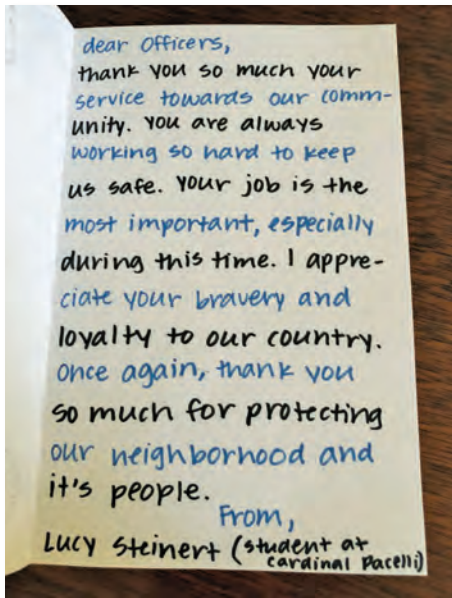 dear Officers,
thank you so much your
service towards our comm-
unity. You are always
working so hard to keep
us safe. Your job is the
most important, especially
during this time. I appre-
ciate your bravery and
loyalty to our country.
Once again, thank you
so much for protecting
our neighborhood and
it's people.
From,
Lucy Steinert (student at
Cardinal Pacelli)